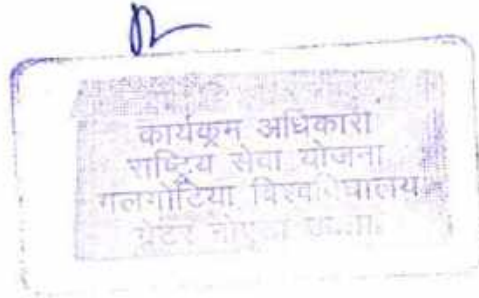 कार्यक्रम अधिकारी
राष्ट्रिय सेवा योजना
गलगोटिया विश्वविद्यालय
ग्रेटर